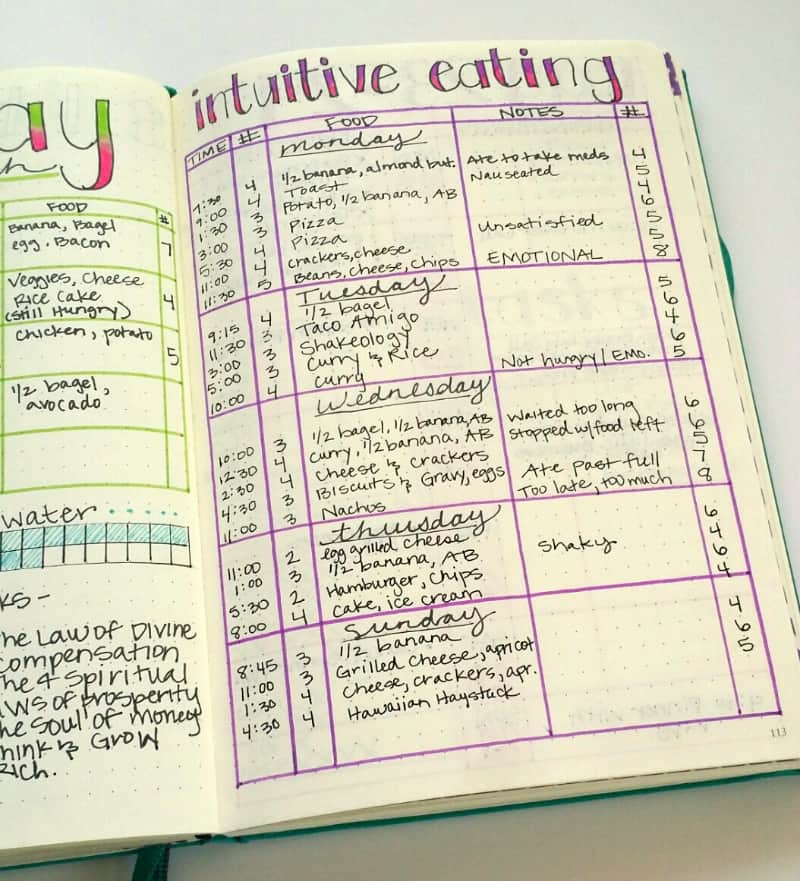 ay
FOOD #
Banana, Bagel
egg. Bacon 7
Veggies, Cheese
Rice Cake
(still Hungry) 4
chicken, potato 5
1/2 bagel,
avocado
water
KS -
he Law of Divine
compensation
he 4 spiritual
aws of Prosperity
he Soul of money
hink & Grow
Rich.
intuitive eating
TIME # FOOD NOTES #
monday
7:30 4 1/2 banana, almond but. Ate to take meds 4
9:00 4 Toast Nauseated 5
1:30 3 Potato, 1/2 banana, AB 4
3:00 3 Pizza 6
5:30 4 Pizza Unsatisfied 5
11:00 4 crackers, cheese 5
11:30 5 Beans, cheese, chips EMOTIONAL 8
Tuesday
9:15 4 1/2 bagel 5
11:30 3 Taco Amigo 6
3:00 3 Shakeology 4
5:00 3 Curry & Rice 6
10:00 4 curry Not hungry/EMO. 5
Wednesday
10:00 3 1/2 bagel, 1/2 banana, AB Waited too long 6
12:30 4 curry, 1/2 banana, AB Stopped w/food left 6
2:30 4 cheese & crackers 5
4:30 3 Biscuits & Gravy, eggs Ate past full 7
11:00 3 Nachos Too late, too much 8
thursday
11:00 2 egg grilled cheese 6
1:00 3 1/2 banana, AB shaky 4
5:30 2 Hamburger, chips 6
8:00 4 cake, ice cream 4
Sunday
8:45 3 1/2 banana 4
11:00 3 Grilled cheese, apricot 6
1:30 4 cheese, crackers, apr. 5
4:30 4 Hawaiian Haystack
113